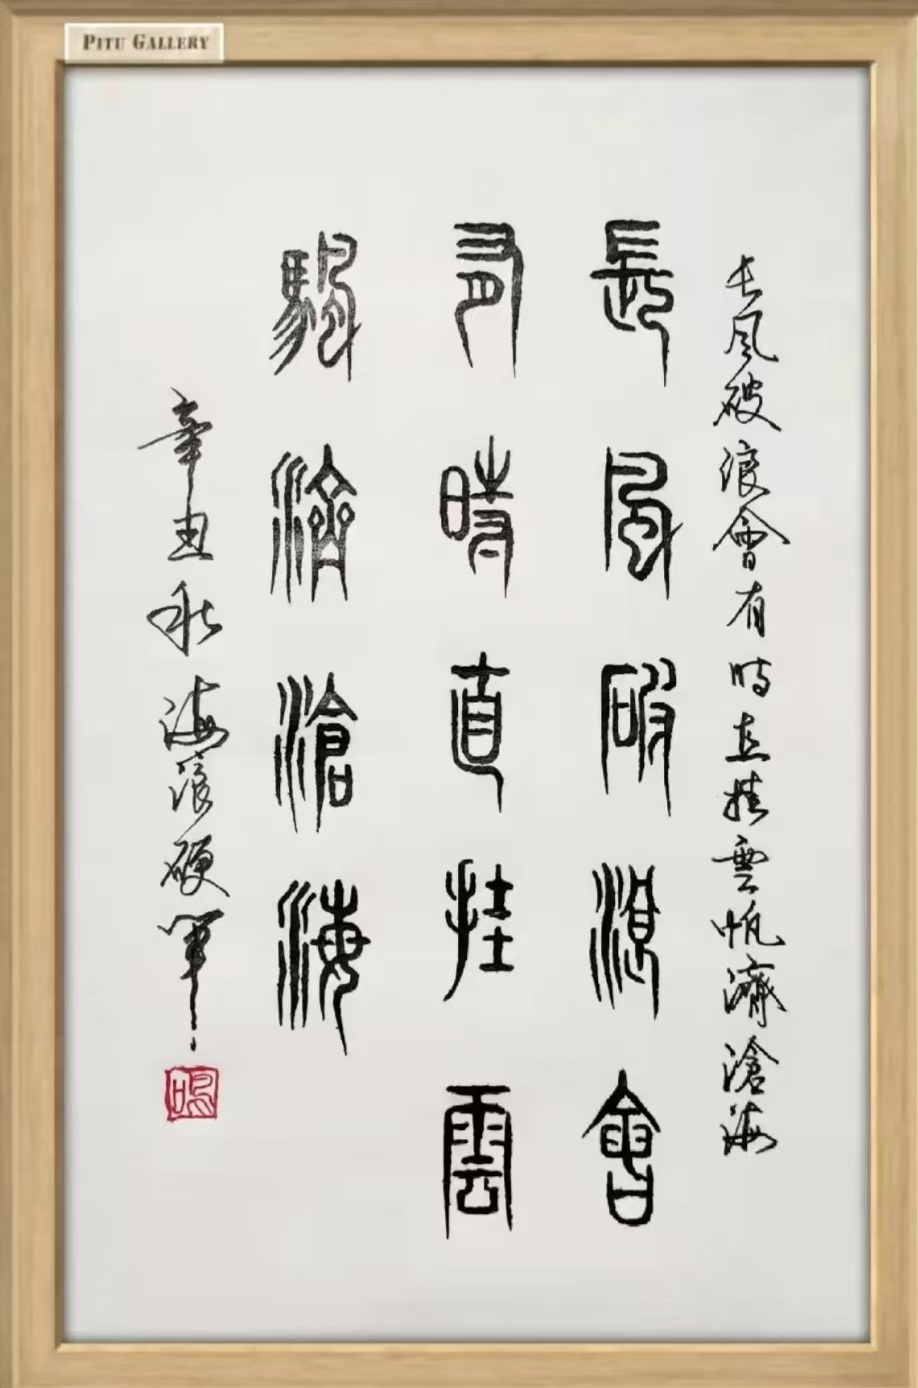 PITU GALLERY
长风破浪會有时直挂雲帆濟滄海
長風破浪會
有時直挂雲
颿濟滄海
辛丑秋海浪硬筆